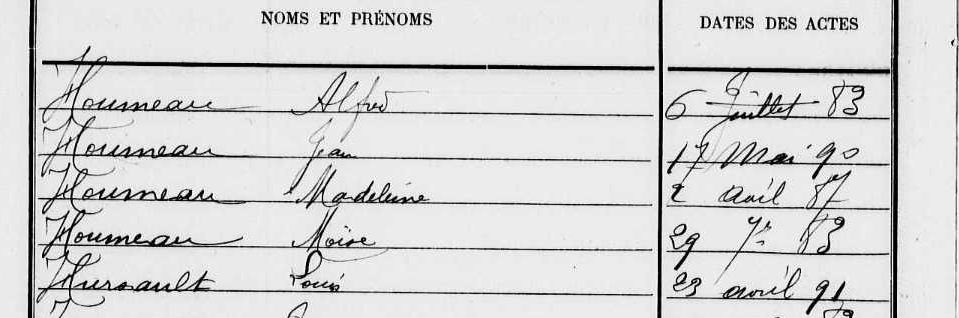 NOMS ET PRÉNOMS DATES DES ACTES
Houmeau Alfred 6 Juillet 83
Houmeau Jean 17 Mai 90
Houmeau Madeleine 2 avril 87
Houmeau Moïse 29 7re 83
Hursault Louis 23 avril 91